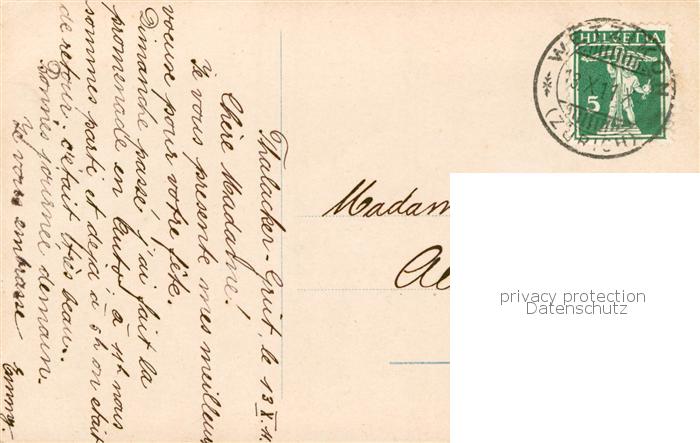 Thalacker-Grüt, le 13 X. 11.
Chère Madame!
Je vous presente mes meilleurs
voeux pour votre fête.
Dimanche passé j'ai fait la
promenade en Auto; à 1 h nous
sommes parti et deja à 5 h on etait
de retour; c'etait très beau.
Bonnes journee demain.
Je vous embrasse
Emmy.
Madam
Al
HELVETIA
5
WETZIKON
13.X.11
(ZÜRICH)
privacy protection
Datenschutz